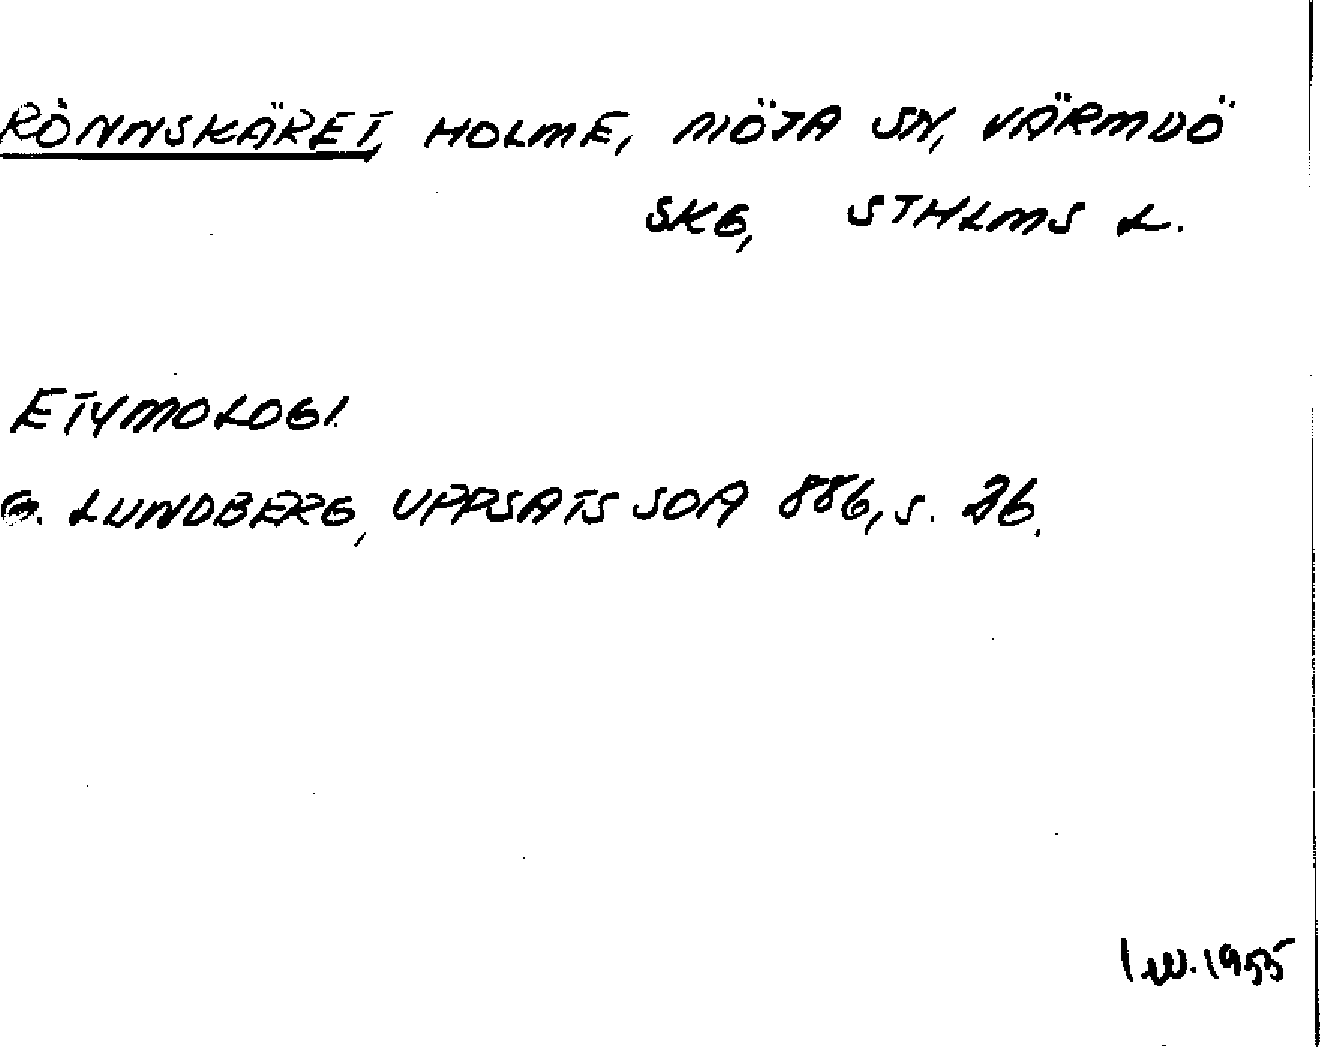 RÖNNSKÄRET, HOLME, MÖJA SN, VÄRMDÖ
SKG, STHLMS L.
ETYMOLOGI.
G. LUNDBERG, UPPSATS SOA 886, s. 26.
1955